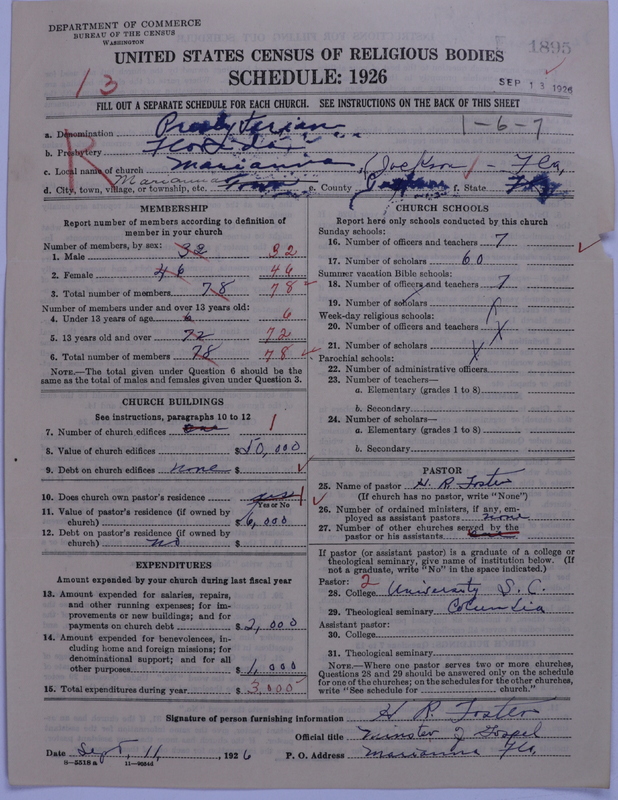 DEPARTMENT OF COMMERCE
BUREAU OF THE CENSUS
WASHINGTON
1895
UNITED STATES CENSUS OF RELIGIOUS BODIES
SCHEDULE: 1926
13
SEP 13 1926
FILL OUT A SEPARATE SCHEDULE FOR EACH CHURCH. SEE INSTRUCTIONS ON THE BACK OF THIS SHEET
R
a. Denomination Presbyterian 1-6-7
b. Presbytery Florida
c. Local name of church Marianna, (Jackson - Fla,
d. City, town, village, or township, etc. Marianna Town e. County Jackson f. State Fla
MEMBERSHIP
Report number of members according to definition of member in your church
Number of members, by sex:
1. Male 32 32
2. Female 46 46
3. Total number of members 78 78
Number of members under and over 13 years old:
4. Under 13 years of age 6 6
5. 13 years old and over 72 72
6. Total number of members 78 78
NOTE.—The total given under Question 6 should be
same as the total of males and females given under Question 3.
CHURCH BUILDINGS
See instructions, paragraphs 10 to 12
7. Number of church edifices One 1
8. Value of church edifices $50,000
9. Debt on church edifices none $
10. Does church own pastor's residence yes 1
Yes or No
11. Value of pastor's residence (if owned by
church) $6,000
12. Debt on pastor's residence (if owned by
church) no $
EXPENDITURES
Amount expended by church during last fiscal year
13. Amount expended for salaries, repairs,
and other running expenses; for im-
provements or new buildings; and for
payments on church debt $2,000
14. Amount expended for benevolences, in-
cluding home and foreign missions; for
denominational support; and for all
other purposes $1,000
15. Total expenditures during year $3,000
CHURCH SCHOOLS
Report here only schools conducted by this church
Sunday schools:
16. Number of officers and teachers 7
17. Number of scholars 60
Summer vacation Bible schools:
18. Number of officers and teachers 7
19. Number of scholars
Week-day religious schools:
20. Number of officers and teachers X
21. Number of scholars X
Parochial schools:
22. Number of administrative officers
23. Number of teachers—
a. Elementary (grades 1 to 8)
b. Secondary
24. Number of scholars—
a. Elementary (grades 1 to 8)
b. Secondary
PASTOR
25. Name of pastor H. R. Foster
(If church has no pastor, write "None")
26. Number of ordained ministers, if any, em-
ployed as assistant pastors none
27. Number of other churches served by the
pastor or his assistants
If pastor (or assistant pastor) is a graduate of a college or
theological seminary, give name of institution below. (If
not a graduate, write "No" in the space indicated.)
Pastor: 2
28. College University S. C.
29. Theological seminary Columbia
Assistant pastor:
30. College
31. Theological seminary
NOTE.—Where one pastor serves two or more churches,
Questions 28 and 29 should be answered only on the schedule
for one of the churches; on the schedules for the other churches,
write "See schedule for church."
Signature of person furnishing information H R Foster
Official title Minster of Gospel
Date Sept, 11, 1926 P. O. Address Marianna Fla,
8-5518 a 11-9664d